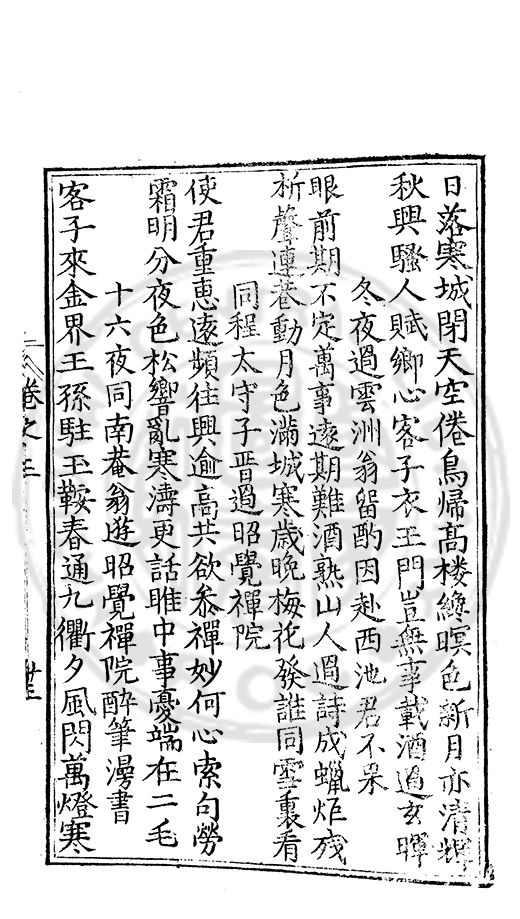 日落寒城閉天空倦鳥歸高楼纔暝色新月亦清輝
秋興騷人賦鄉心客子衣王門豈無事載酒過玄暉
冬夜過雲洲翁留酌因赴西池君不果
眼前期不定萬事遠期難酒熟山人過詩成蠟炬殘
柝聲連巷動月色滿城寒歲晚梅花發誰同雪裏看
同程太守子晋過昭覺禪院
使君重惠遠頻往興逾高共欲叅禪妙何心索句勞
霜明分夜色松響亂寒濤更話睢中事憂端在二毛
十六夜同南菴翁遊昭覺禪院醉筆漫書
客子來金界王孫駐玉鞍春通九衢夕風閃萬燈寒
卷之三